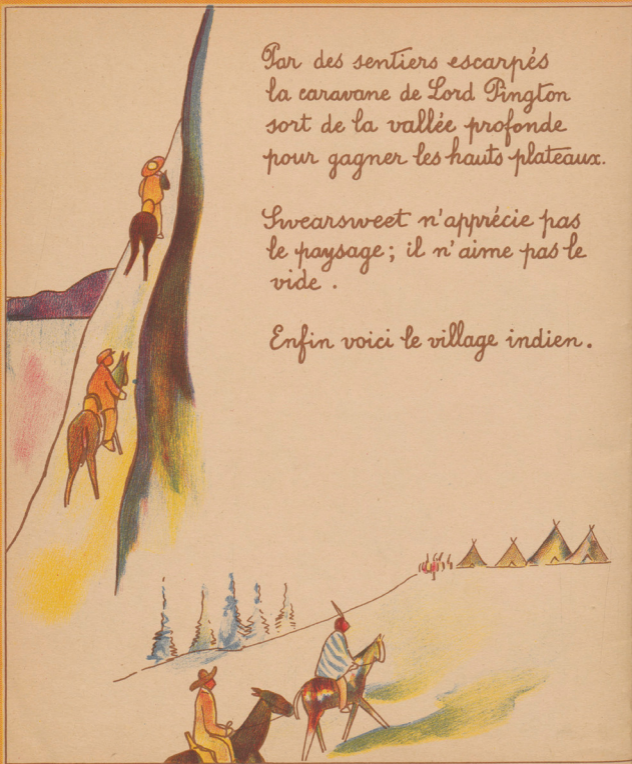 Par des sentiers escarpés
la caravane de Lord Pington
sort de la vallée profonde
pour gagner les hauts plateaux.
Swearsweet n'apprécie pas
le paysage ; il n'aime pas le
vide .
Enfin voici le village indien.